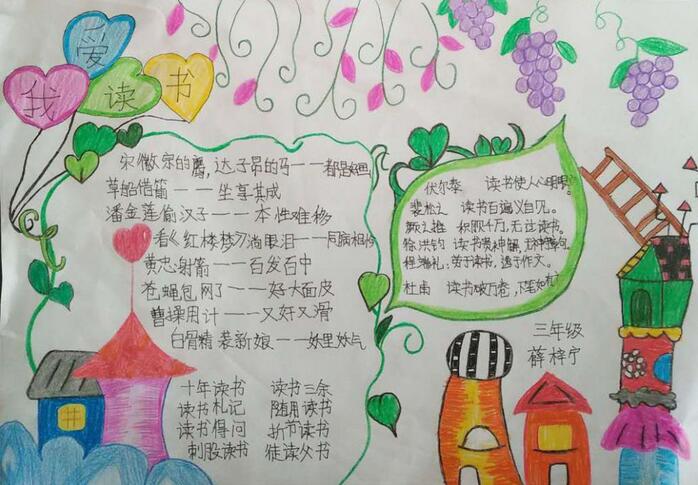 我爱读书
宋徽宗的鹰,赵子昂的马——都是好画
草船借箭——坐享其成
潘金莲偷汉子——本性难移
看《红楼梦》淌眼泪——同病相怜
黄忠射箭——百发百中
苍蝇包网了——好大面皮
曹操用计——又奸又滑
白骨精装新娘——妖里妖气
十年读书 读书三余
读书札记 随月读书
读书得间 折节读书
刺股读书 徒读父书
伏尔泰 读书使人心明眼
裴松之 读书百遍义自见。
颜之推 积财千万,无过读书。
徐洪钧 读书贵神解,无神
程端礼 劳于读书,逸于作文。
杜甫 读书破万卷,下笔如有
三年级
薛梓宁